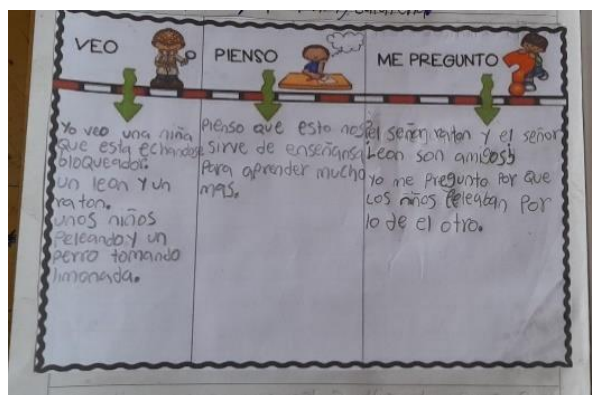 VEO
Yo veo una niña
que esta echandose
bloqueador.
un leon y un
raton.
unos niños
Peleando y un
perro tomando
limonada.
PIENSO
Pienso que esto nos
sirve de enseñansa
Para aprender mucho
mas.
ME PREGUNTO
el señor raton y el señor
Leon son amigos
Yo me Pregunto Por que
Los niños Peleaban Por
lo de el otro.